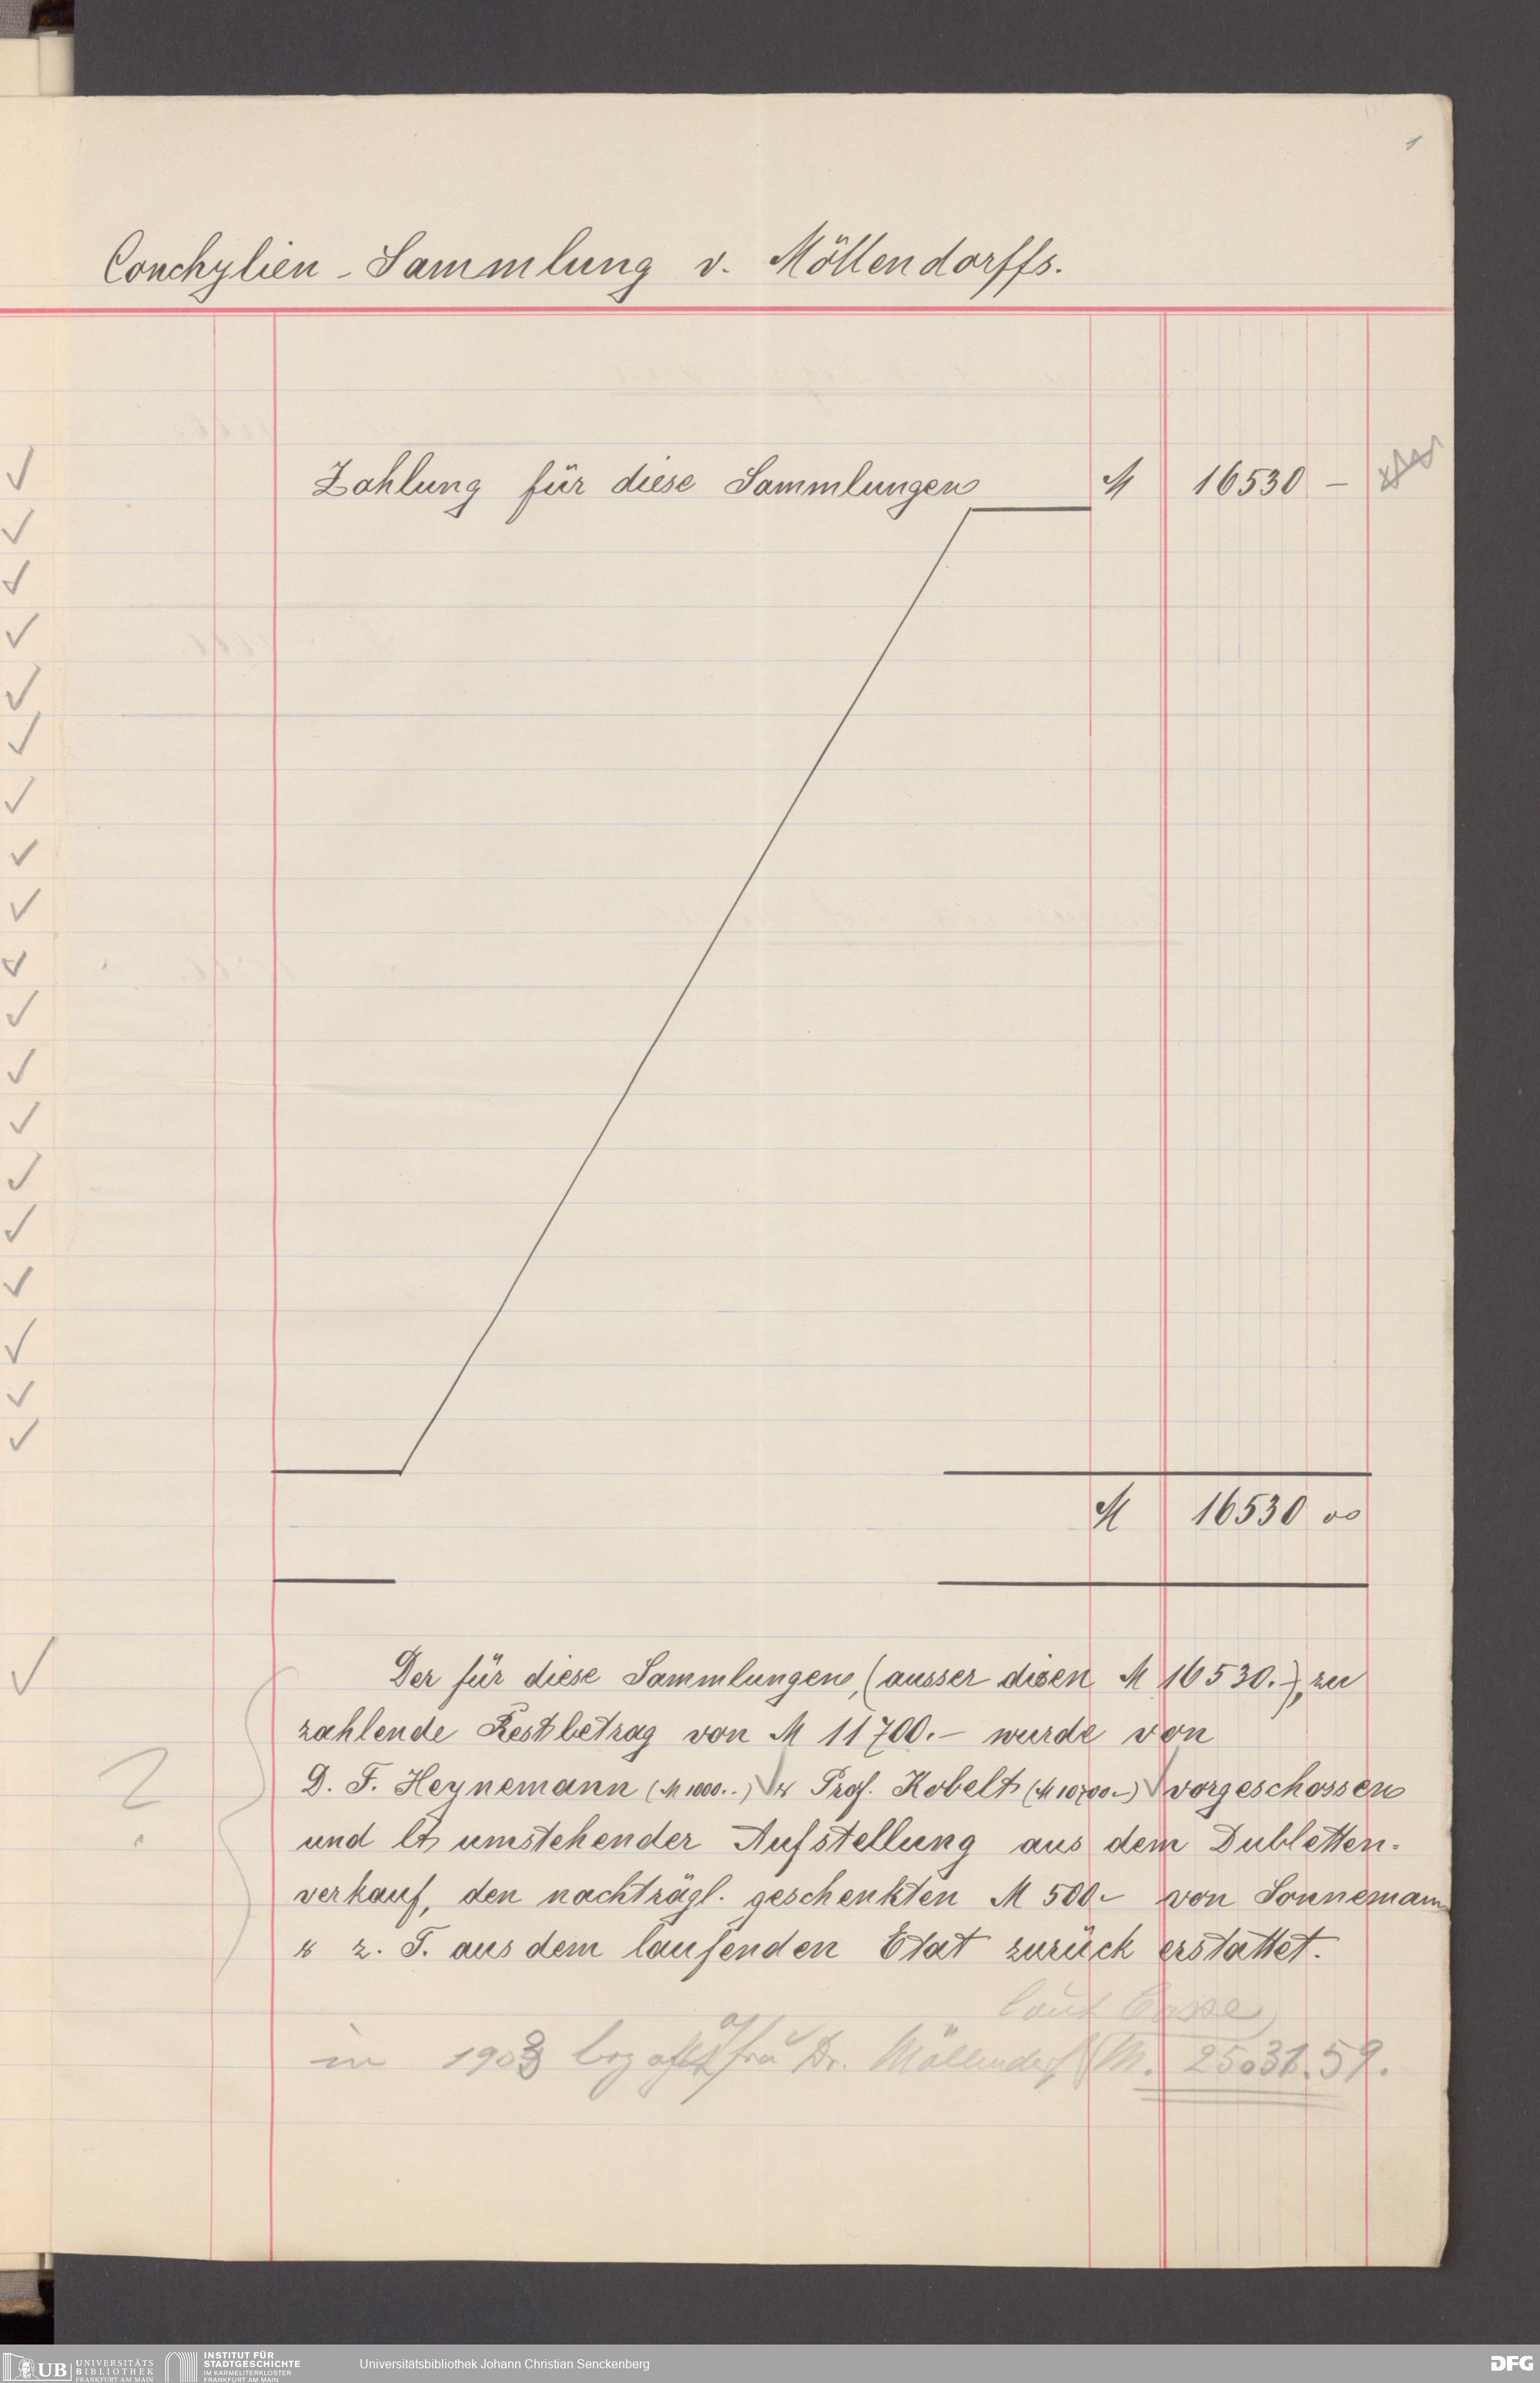 1
Conchylien-Sammlung v. Möllendorffs.
Zahlung für diese Sammlungen M 16530 –
M 16530 00
Der für diese Sammlungen, (ausser diesen M 16530.–), zu
zahlende Restbetrag von M 11700.– wurde von
D. F. Heynemann (M 1000.–) & Prof. Kobelt (M 10700.–) vorgeschossen
und lt umstehender Aufstellung aus dem Dubletten-
verkauf, den nachträgl. geschenkten M 500.– von Sonnemann
& z. T. aus dem laufenden Etat zurück erstattet.
laut Casse
in 1903 bezahlt Dr. Möllendorff M. 59.
2
UB UNIVERSITÄTS
BIBLIOTHEK
FRANKFURT AM MAIN
INSTITUT FÜR
STADTGESCHICHTE
IM KARMELITERKLOSTER
FRANKFURT AM MAIN
Universitätsbibliothek Johann Christian Senckenberg
DFG